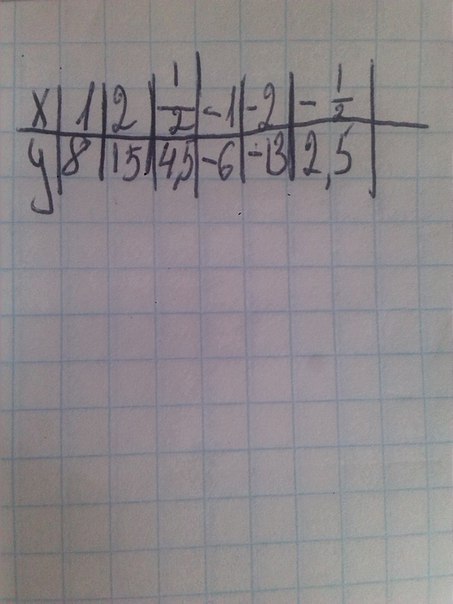 x | 1 | 2 | 1/2 | -1 | -2 | - 1/2 |
y | 8 | 15 | 4,5 | -6 | -13 | 2,5 |